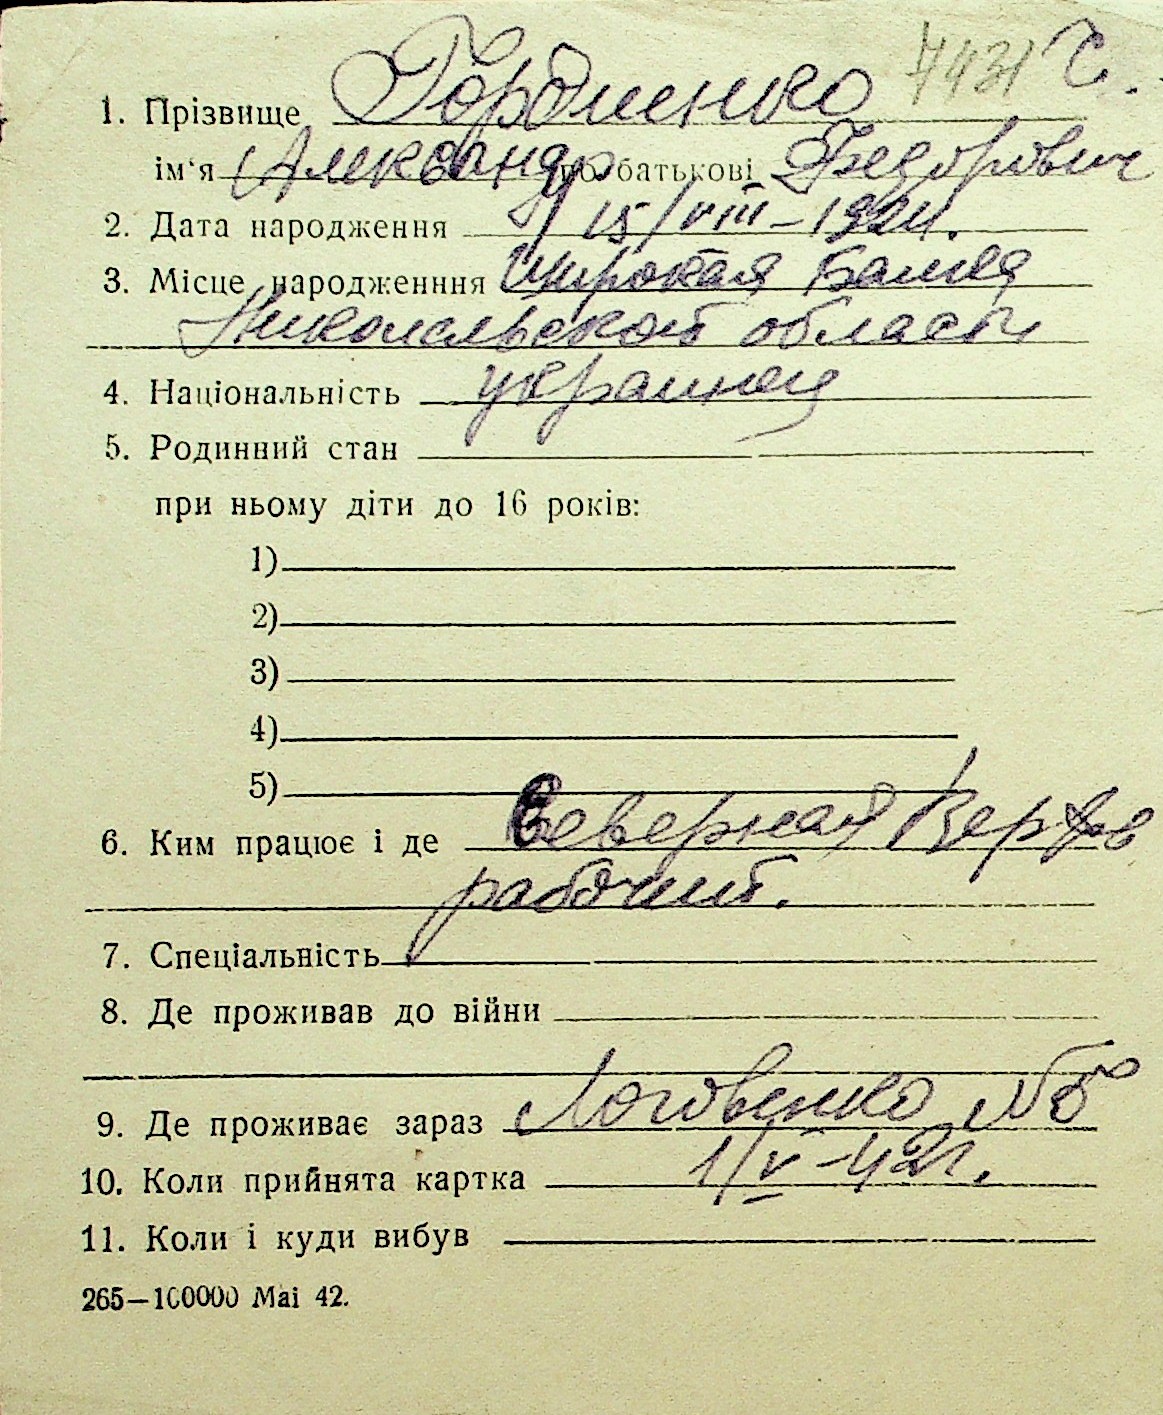 7431 С.
1. Прізвище Гордиенко
ім'я Александр по батькові Федорович
2. Дата народження 15/VIII – 1924.
3. Місце народженння Широкая Балка
Николаевской области
4. Національність украинец
5. Родинний стан
при ньому діти до 16 років:
1)
2)
3)
4)
5)
6. Ким працює і де Северная Верфь
рабочий.
7. Спеціальність
8. Де проживав до війни
9. Де проживає зараз №5
10. Коли прийнята картка 1/V – 42 г.
11. Коли і куди вибув
265—100000 Маі 42.